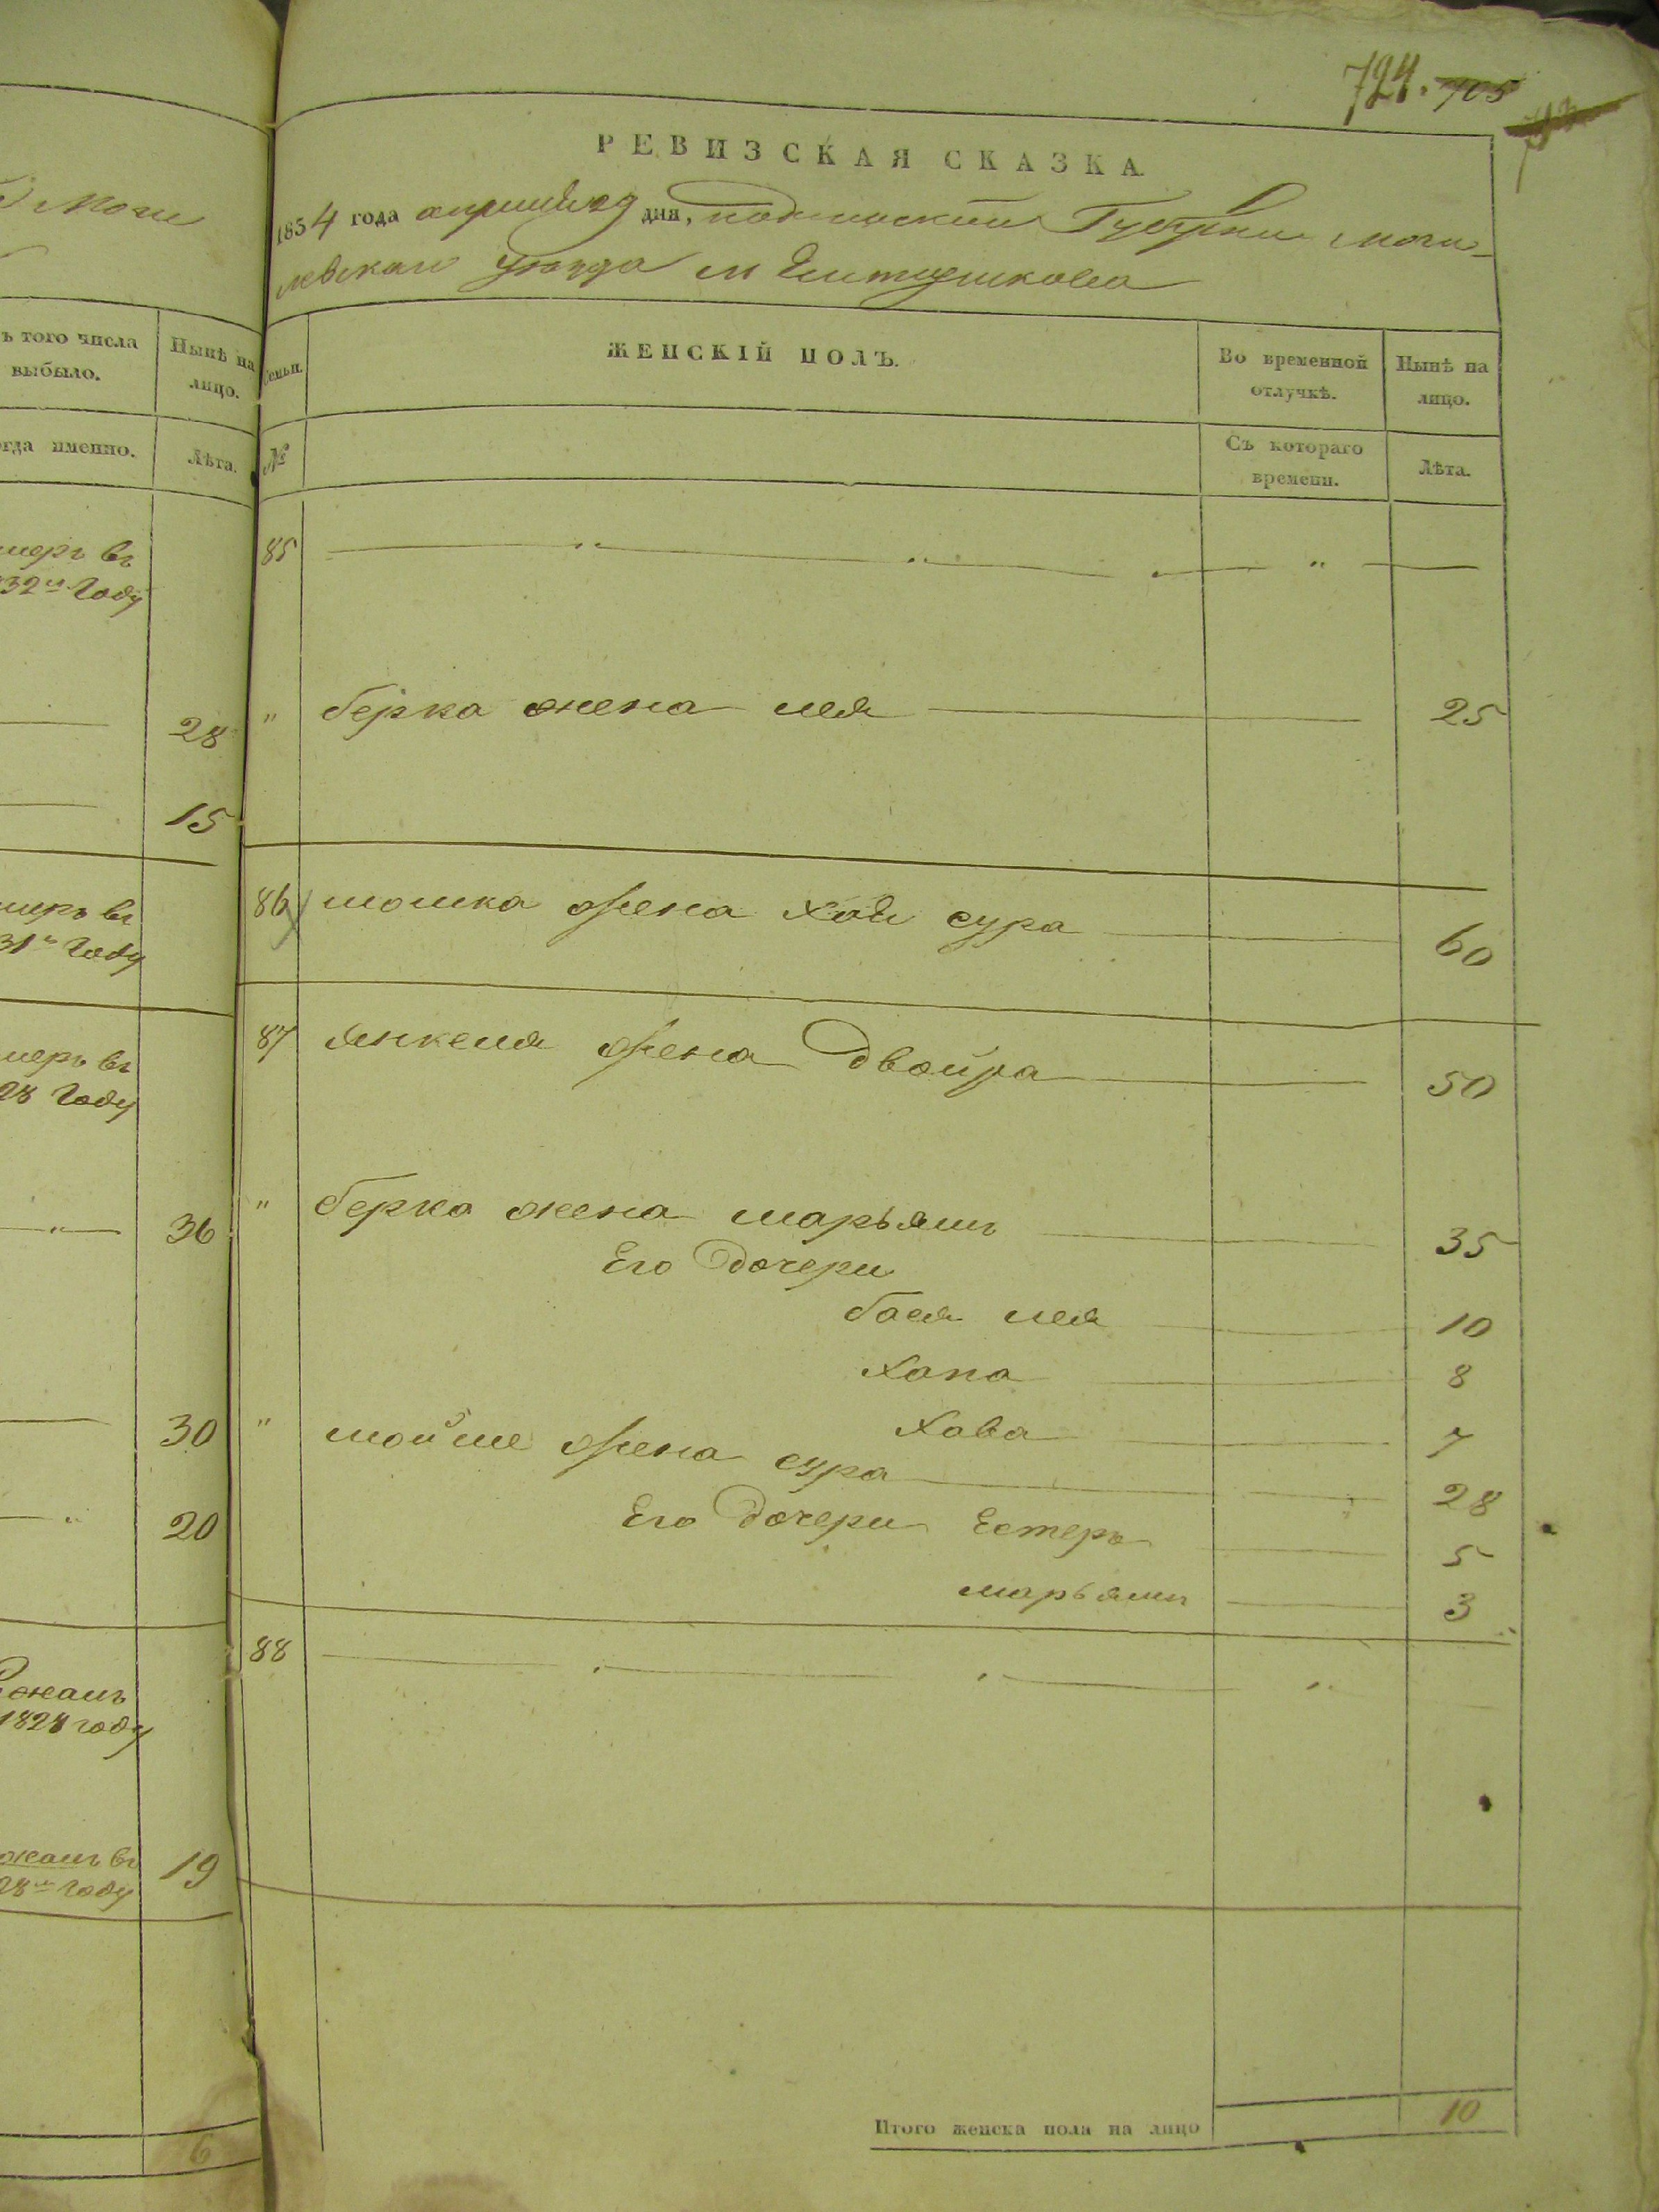 Моги
ъ того числа
выбыло.
Нынѣ на
лицо.
огда именно.
Лѣта.
умеръ въ
32м году
28
15
умеръ въ
31м году
умеръ въ
28 году
36
30
20
1828 году
въ
28м году
19
6
724. 705
РЕВИЗСКАЯ СКАЗКА
1854 года апреля 29 дня, подольской Губернии Моги-
левскаго уезда м
Семьи.
ЖЕНСКІЙ ПОЛЪ.
Во временной
отлучкѣ.
Нынѣ на
лицо.
№
Съ котораго
времени.
Лѣта.
85 — " — " — " —
" берка жена лея 25
86 мошка жена хая сура 60
87 янкеля жена Двойра 50
" берка жена марьямъ 35
Его Дочери
бася лея 10
Хана 8
Хава 7
" мойше жена сура 28
Его Дочери Естеръ 5
марьямъ 3
88
Итого женска пола на лицо 10